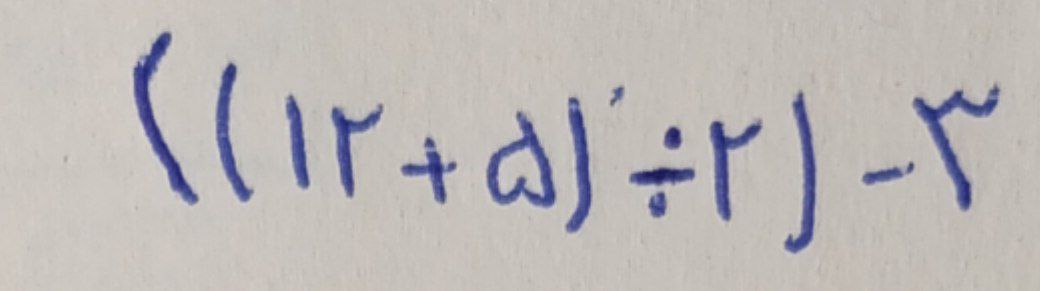 ((۱۲+۵)÷۲)-۳